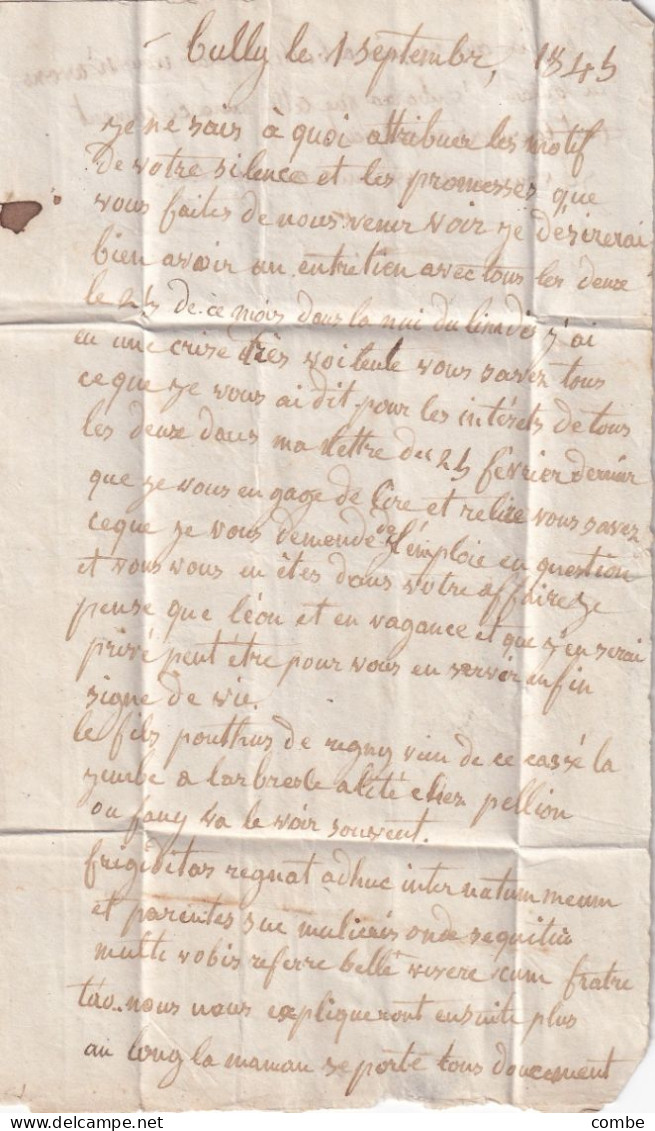 Cully le 1 septembre, 1845
je ne sais à quoi attribuer les motif
de votre silence et les promesses que
vous faites de nous venir voir je désirerai
bien avoir un entretien avec tous les deux
le 25 de ce mois dans la nui du j'ai
eu une crise très voilente vous savez tous
ce que je vous ai dit pour les intérèts de tous
les deux dans ma lettre du 25 février dernier
que je vous engage de lire et relire vous savez
ceque je vous demende de l'emploie en question
et vous vous en êtes dans votre affaire je
pense que léon et en vagance et que j'en serai
privé peut être pour vous en servir enfin
signe de vie.
le fils pouthus de regny vien de ce cassé la
jembe a larbresle alité chez pellion
ou fany va le voir souvent.
frigiditas regnat adhuc inter natum meum
et parentes suae mulieris onde sequitur
multi vobis referre belle vivere cum fratre
tuo.. nous nous expliqueront ensuite plus
au long la maman se porte tous doucement
combe